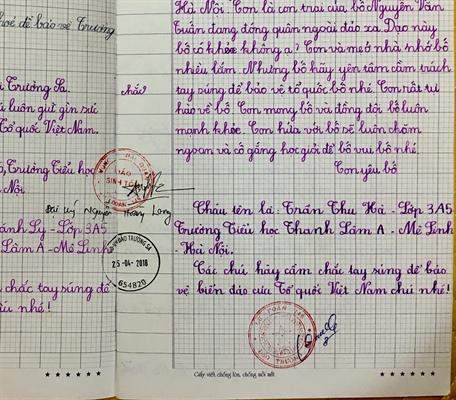 khoẻ để bảo vệ Trường
Trường Sa.
luôn giữ gìn sức
Tổ quốc Việt Nam.
Trường Tiểu học
Nội.
Đại úy Nguyễn Hoàng Long
ánh Lý - Lớp 3A5
Lâm A - Mê Linh
chắc tay súng để
nhé!
ĐẢO
SINH TỒN
BĐ TRƯỜNG SA
25-04-2018
654820
Hà Nội. Con là con trai của bố Nguyễn Văn
Tuấn đang đóng quân ngoài đảo xa. Dạo này
bố có khỏe không ạ? Con và mẹ ở nhà nhớ bố
nhiều lắm. Nhưng bố hãy yên tâm cầm trắc
tay súng để bảo vệ tổ quốc bố nhé. Con rất tự
hào về bố. Con mong bố và đồng đội bố luôn
mạnh khỏe. Con hứa với bố sẽ luôn chăm
ngoan và cố gắng học giỏi để bố vui bố nhé.
Con yêu bố
Cháu tên là: Trần Thu Hà - Lớp 3A5
Trường Tiểu học Thanh Lâm A - Mê Linh
- Hà Nội.
Các chú hãy cầm chắc tay súng để bảo
vệ biển đảo của Tổ quốc Việt Nam chú nhé!
Giấy viết chống lóa, chống mỏi mắt.